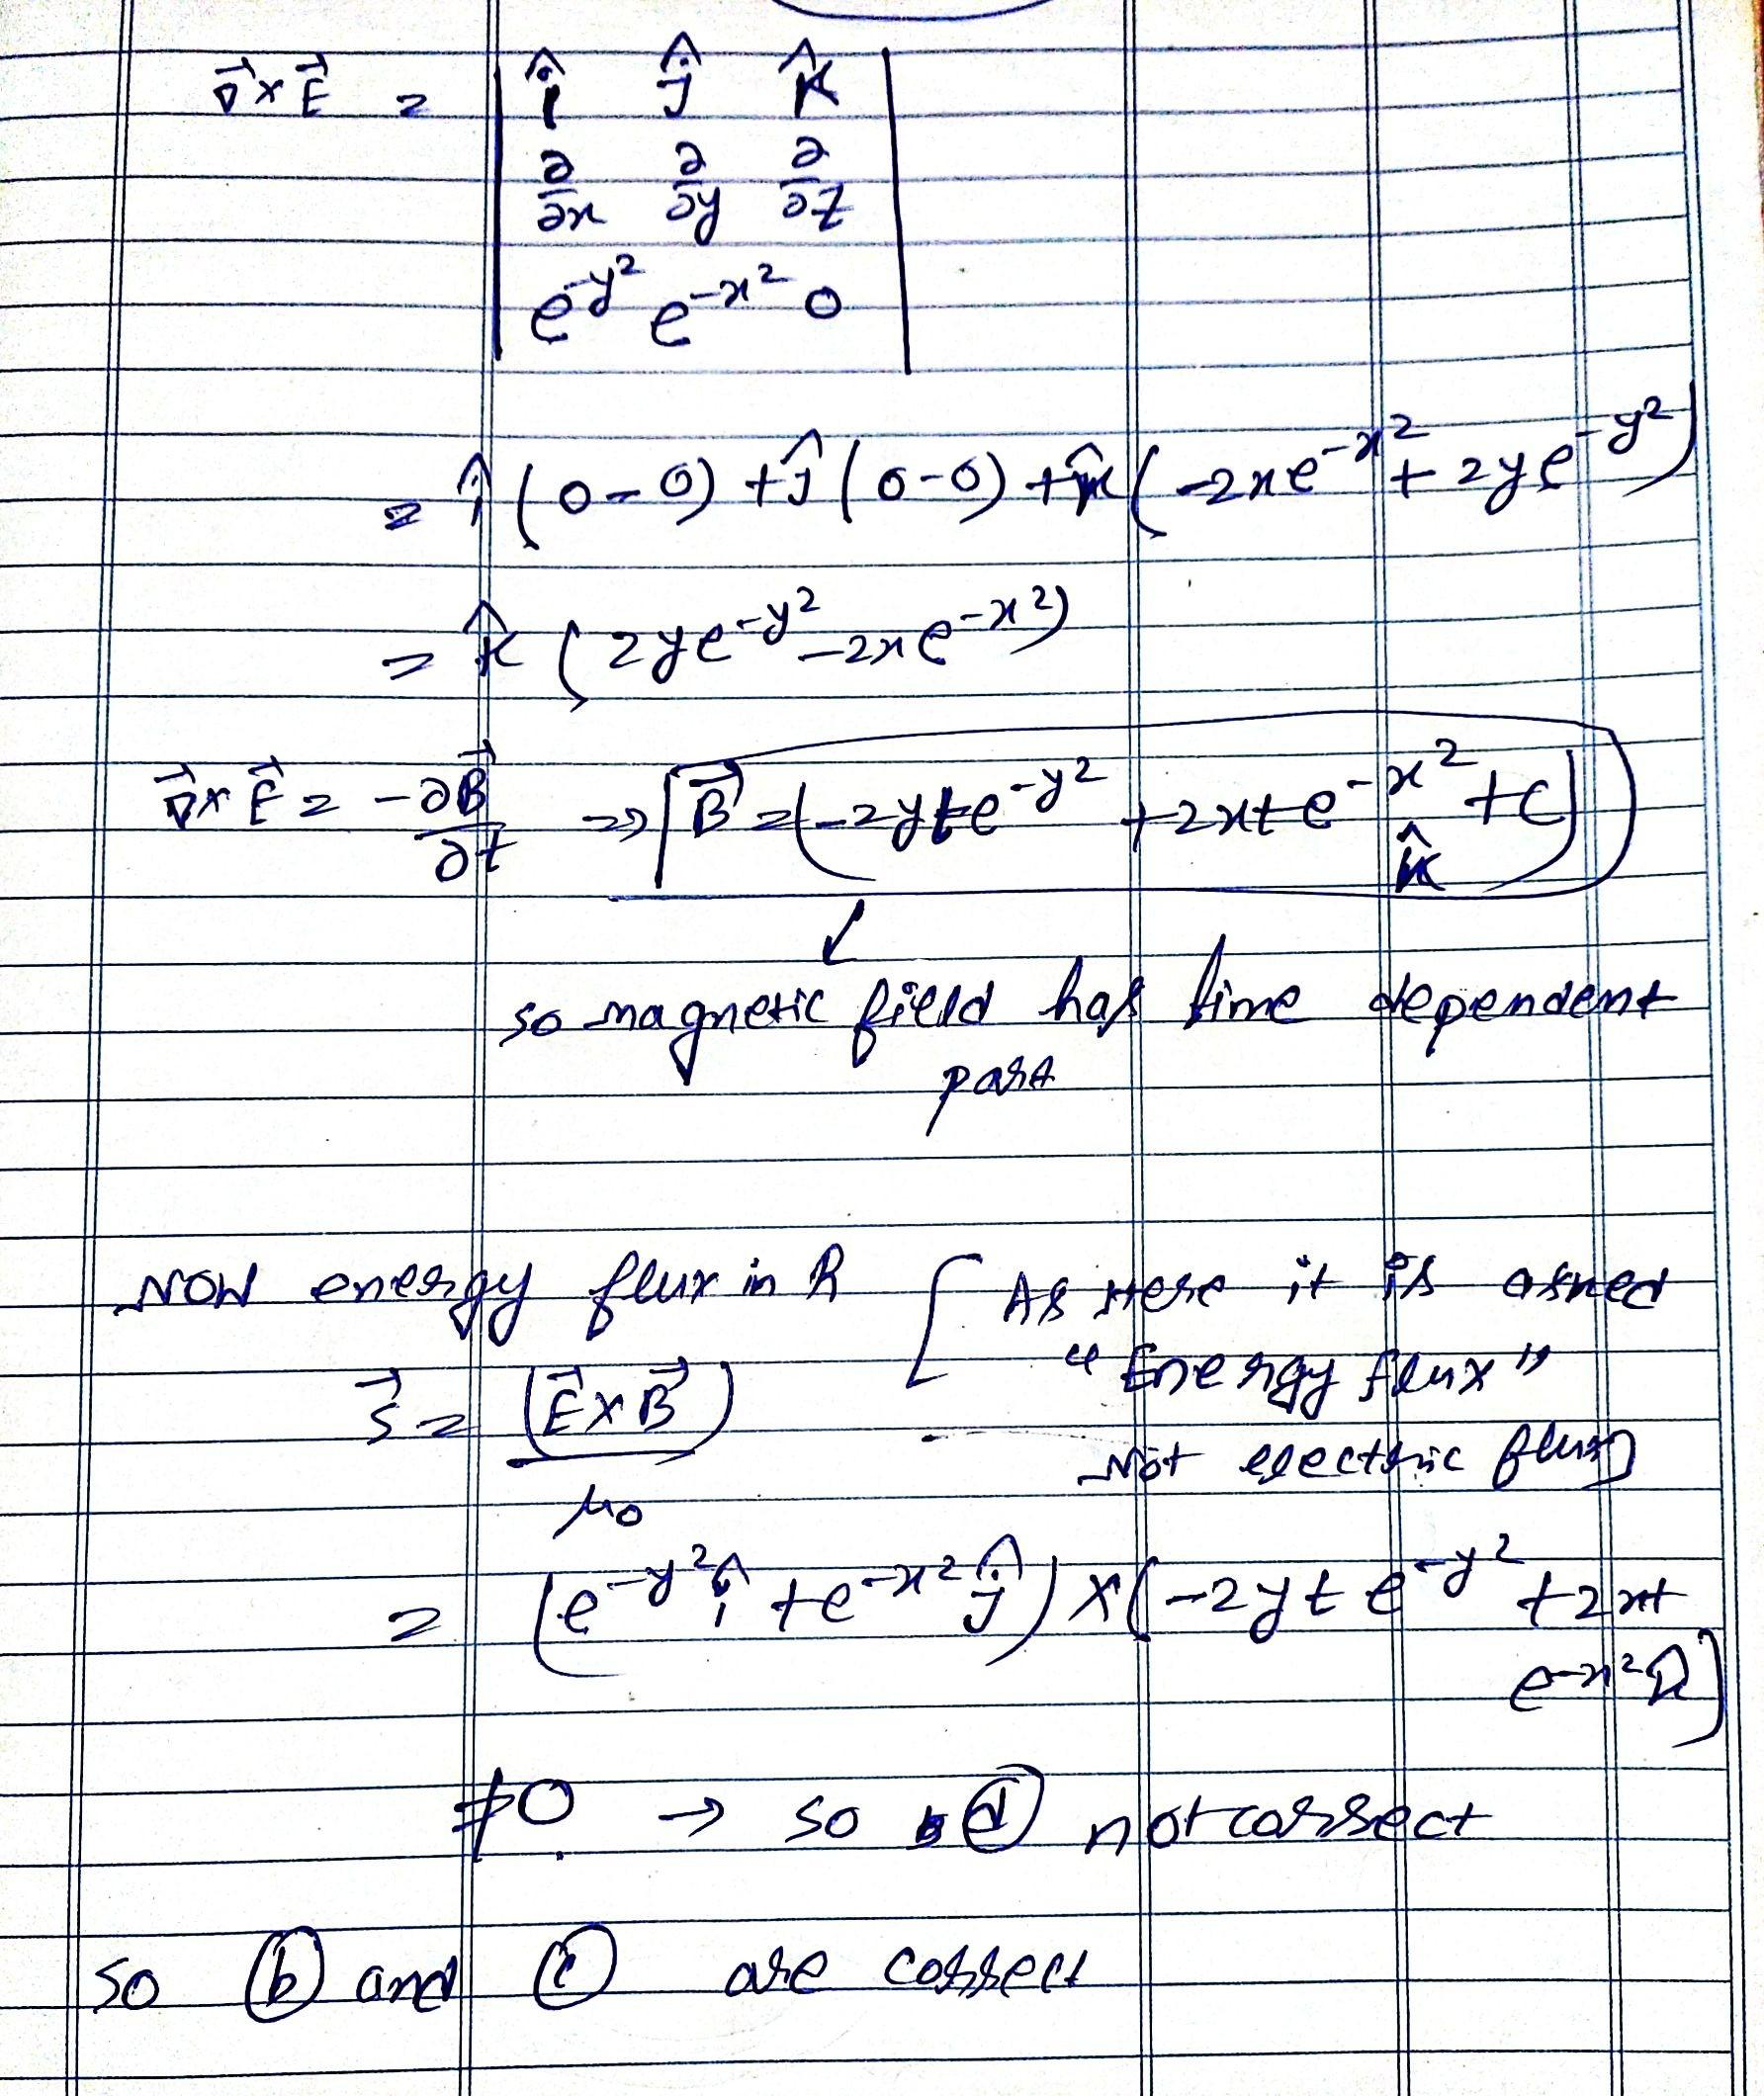 ∇⃗ × E⃗ = | î ĵ k̂ |
| ∂/∂x ∂/∂y ∂/∂z |
| e^-y² e^-x² 0 |
= î (0-0) + ĵ (0-0) + k̂ (-2xe^-x² + 2ye^-y²)
= k̂ (2ye^-y² - 2xe^-x²)
∇⃗ × E⃗ = -∂B⃗/∂t ⇒ B⃗ = (-2yte^-y² + 2xte^-x² + c) k̂
so magnetic field has time dependent
part
Now energy flux in R [ As Here it is asked
"Energy flux"
S⃗ = (E⃗ × B⃗)/μ0 Not electric flux]
= (e^-y² î + e^-x² ĵ) × (-2yt e^-y² + 2xt
e^-x² k̂)
≠ 0 → so (d) not correct
so (b) and (c) are correct